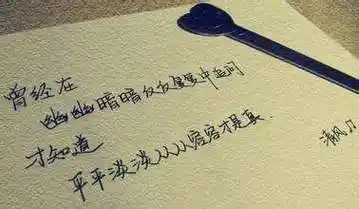 曾经在
幽幽暗暗反反复复中追问
才知道
平平淡淡从从容容才是真